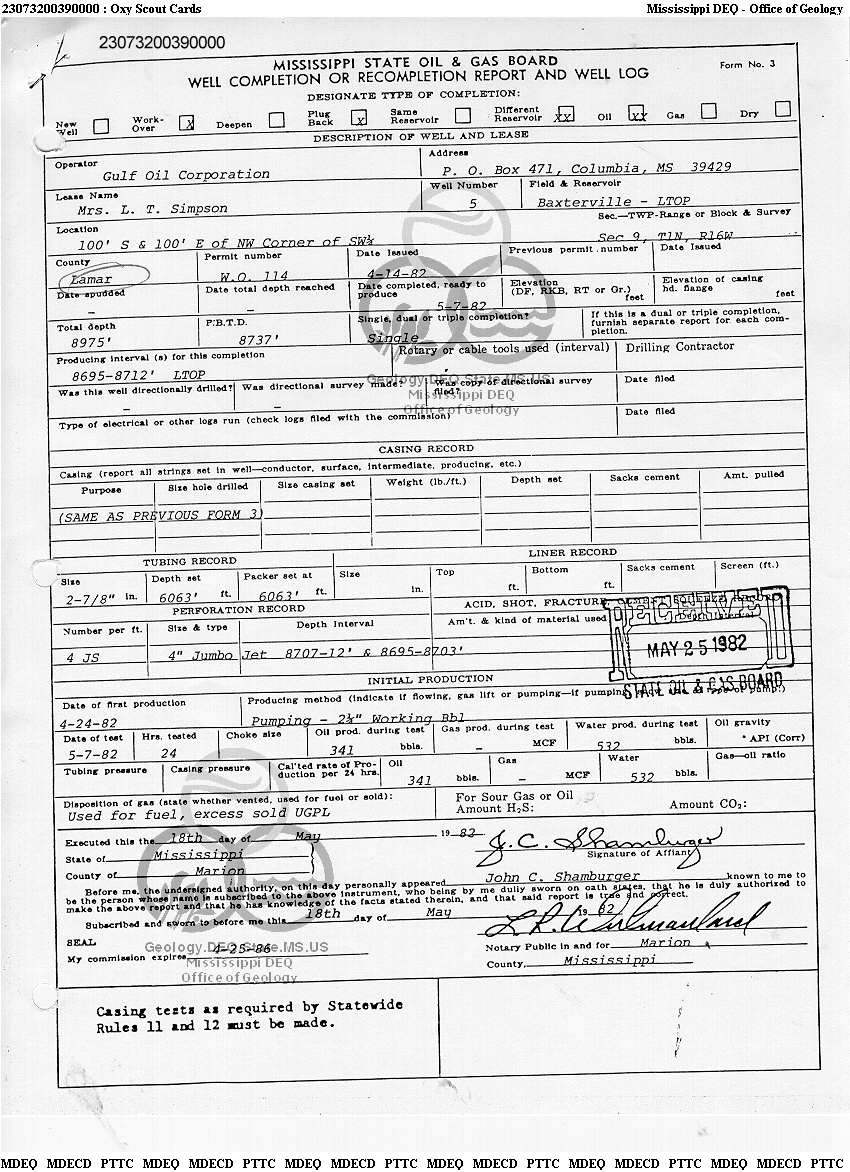 23073200390000 : Oxy Scout Cards Mississippi DEQ - Office of Geology
23073200390000
MISSISSIPPI STATE OIL & GAS BOARD Form No. 3
WELL COMPLETION OR RECOMPLETION REPORT AND WELL LOG
DESIGNATE TYPE OF COMPLETION:
New Well Work-Over X Deepen Plug Back X Same Reservoir Different Reservoir XX Oil XX Gas Dry
DESCRIPTION OF WELL AND LEASE
Operator Address
Gulf Oil Corporation P. O. Box 471, Columbia, MS 39429
Lease Name Well Number Field & Reservoir
Mrs. L. T. Simpson 5 Baxterville - LTOP
Location Sec.—TWP-Range or Block & Survey
100' S & 100' E of NW Corner of SW¼ Sec 9, T1N, R16W
County Permit number Date Issued Previous permit number Date Issued
Lamar W.O. 114 4-14-82
Date spudded Date total depth reached Date completed, ready to produce Elevation (DF, RKB, RT or Gr.) feet Elevation of casing hd. flange feet
- - 5-7-82
Total depth P.B.T.D. Single, dual or triple completion? If this is a dual or triple completion, furnish separate report for each completion.
8975' 8737' Single
Producing interval (s) for this completion Rotary or cable tools used (interval) Drilling Contractor
8695-8712' LTOP
Geology.DEQ.State.MS.US
Mississippi DEQ
Office of Geology
Was this well directionally drilled? Was directional survey made? Was copy of directional survey filed? Date filed
- -
Type of electrical or other logs run (check logs filed with the commission) Date filed
CASING RECORD
Casing (report all strings set in well—conductor, surface, intermediate, producing, etc.)
Purpose Size hole drilled Size casing set Weight (lb./ft.) Depth set Sacks cement Amt. pulled
(SAME AS PREVIOUS FORM 3)
TUBING RECORD LINER RECORD
Size Depth set Packer set at Size Top Bottom Sacks cement Screen (ft.)
2-7/8" in. 6063' ft. 6063' ft. in. ft. ft.
PERFORATION RECORD ACID, SHOT, FRACTURE, CEMENT SQUEEZE
Number per ft. Size & type Depth Interval Am't. & kind of material used Depth Interval
4 JS 4" Jumbo Jet 8707-12' & 8695-8703'
RECEIVED
MAY 25 1982
STATE OIL & GAS BOARD
INITIAL PRODUCTION
Date of first production Producing method (indicate if flowing, gas lift or pumping—if pumping, type of pump:)
4-24-82 Pumping - 2¼" Working Bbl
Date of test Hrs. tested Choke size Oil prod. during test Gas prod. during test Water prod. during test Oil gravity
5-7-82 24 341 bbls. - MCF 532 bbls. ° API (Corr)
Tubing pressure Casing pressure Cal'ted rate of Production per 24 hrs. Oil 341 bbls. Gas - MCF Water 532 bbls. Gas—oil ratio
Disposition of gas (state whether vented, used for fuel or sold): For Sour Gas or Oil
Used for fuel, excess sold UGPL Amount H₂S: Amount CO₂:
Executed this the 18th day of May 19 82 J. C. Shamburger
State of Mississippi Signature of Affiant
County of Marion
Before me, the undersigned authority, on this day personally appeared John C. Shamburger known to me to
be the person whose name is subscribed to the above instrument, who being by me dully sworn on oath states, that he is duly authorized to
make the above report and that he has knowledge of the facts stated therein, and that said report is true and correct.
Subscribed and sworn to before me this 18th day of May 19 82
SEAL
Geology.DEQ.State.MS.US
Mississippi DEQ
Office of Geology
My commission expires 4-25-86 Notary Public in and for Marion
County, Mississippi
Casing tests as required by Statewide
Rules 11 and 12 must be made.
MDEQ MDECD PTTC MDEQ MDECD PTTC MDEQ MDECD PTTC MDEQ MDECD PTTC MDEQ MDECD PTTC MDEQ MDECD PTTC MDEQ